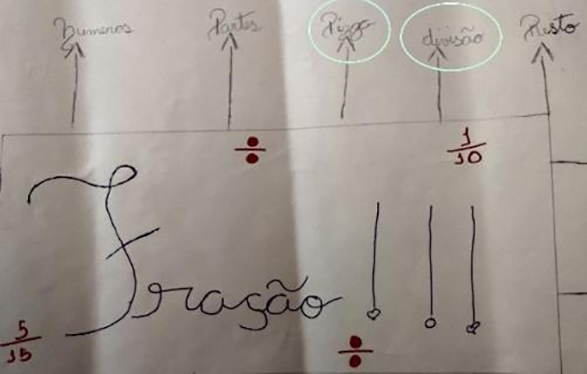 Números Partes Pizza divisão Resto
÷ 1/10
Fração !!!
5/15 ÷